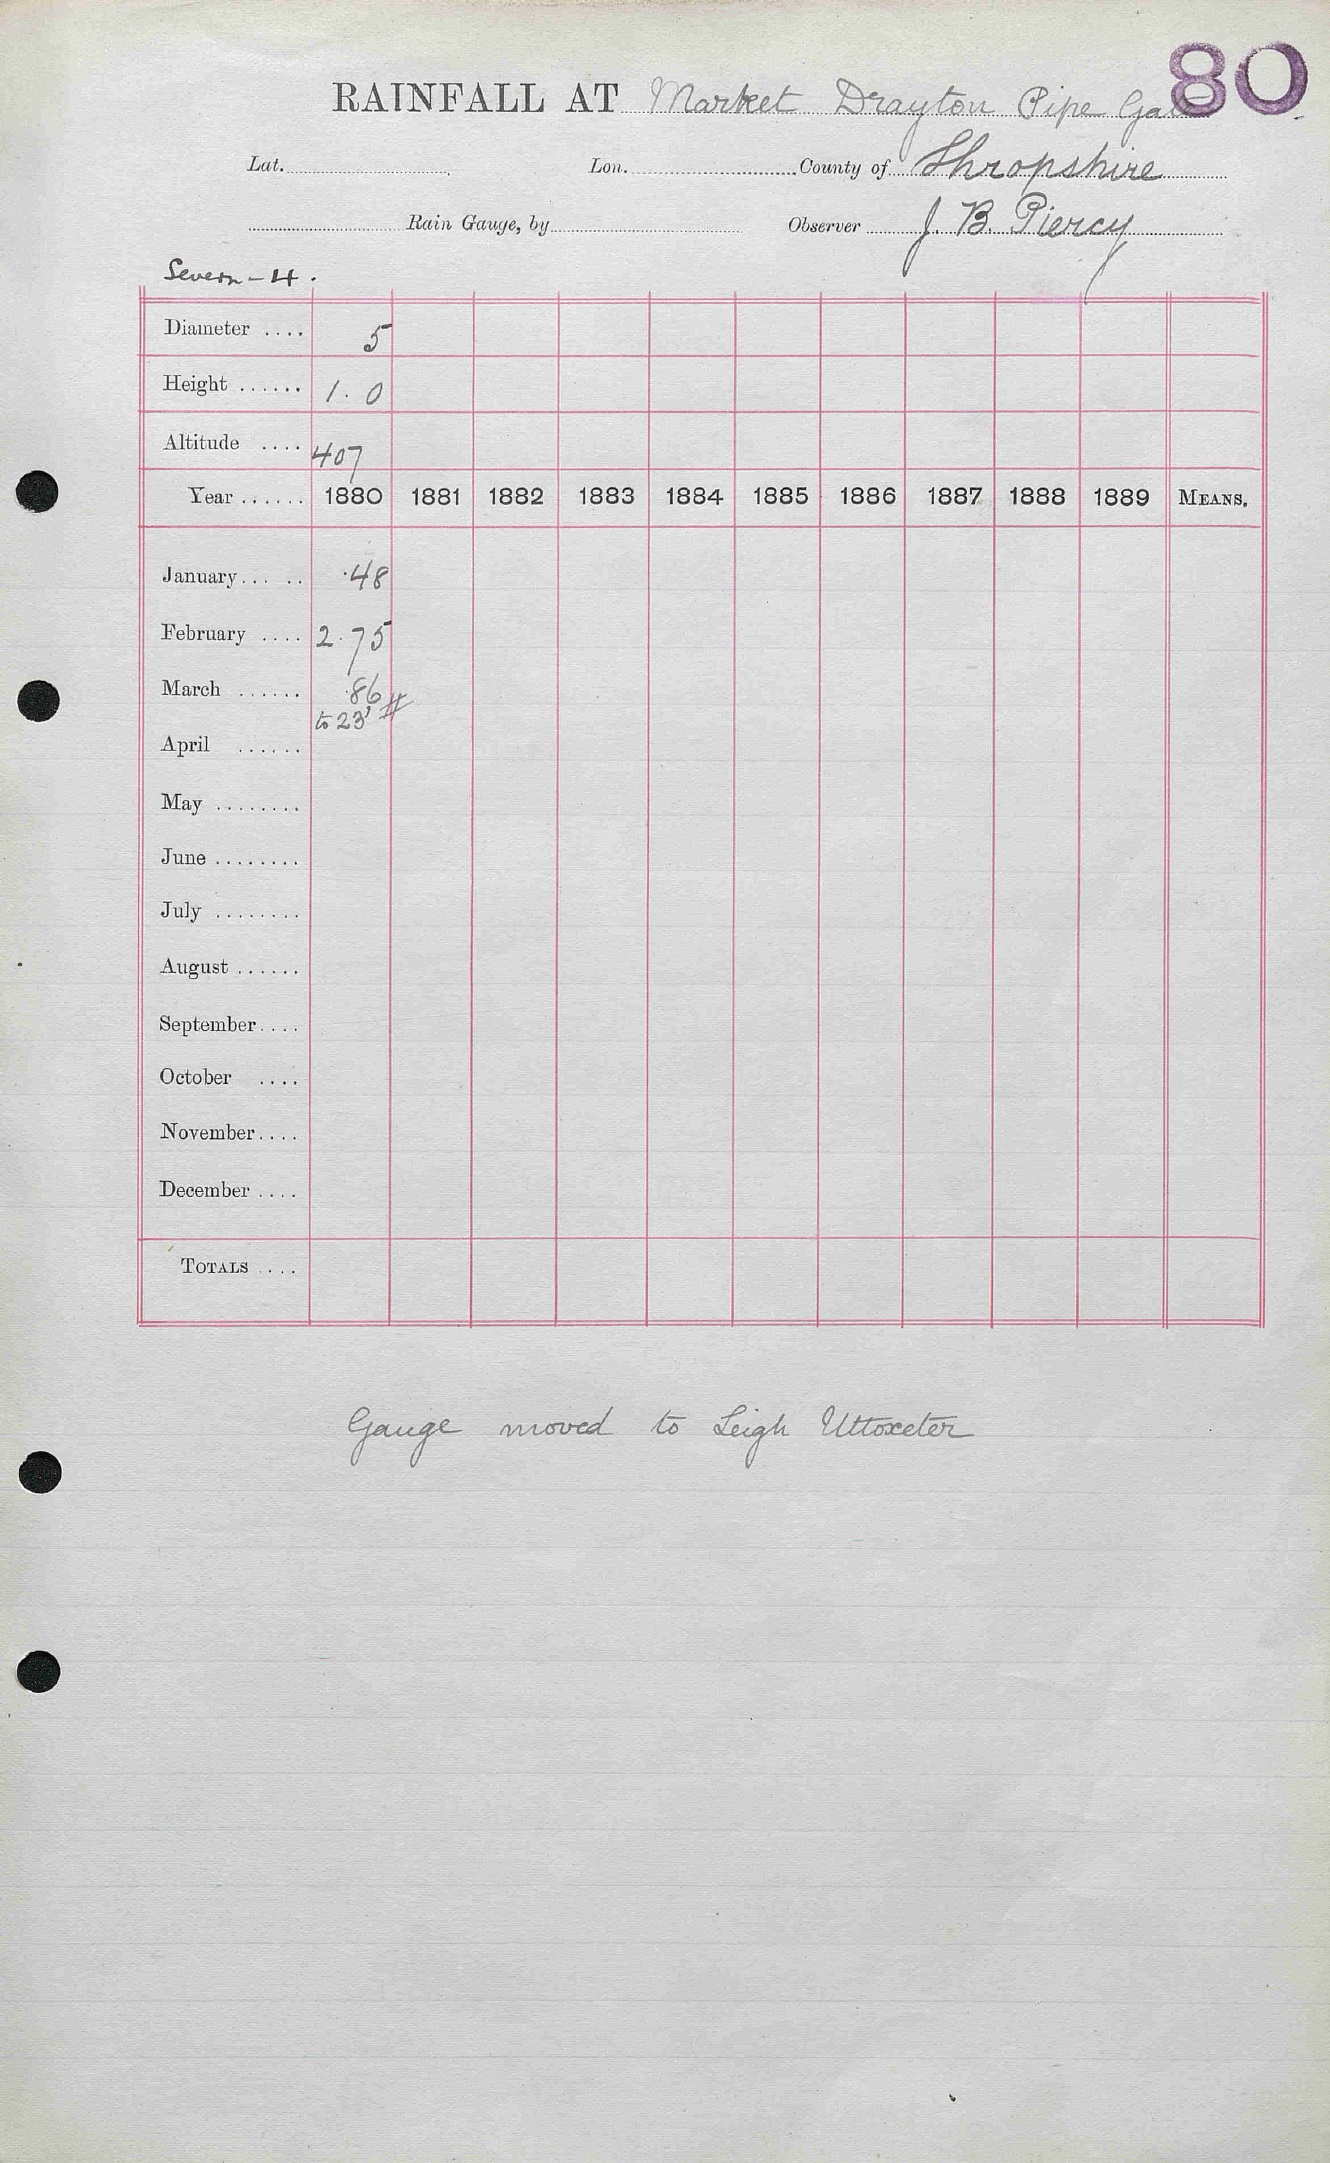 80
RAINFALL AT Market Drayton Pipe Gate
Lat. Lon. County of Shropshire
Rain Gauge, by Observer J. B. Piercy
Severn - 4.
Diameter .... 5
Height ...... 1. 0
Altitude .... 407
Year ...... 1880 1881 1882 1883 1884 1885 1886 1887 1888 1889 MEANS.
January ... .. .48
February .... 2.75
March ...... .86
to 23 #
April ......
May ........
June ........
July ........
August ......
September ....
October ....
November ....
December ....
TOTALS ....
Gauge moved to Leigh Uttoxeter